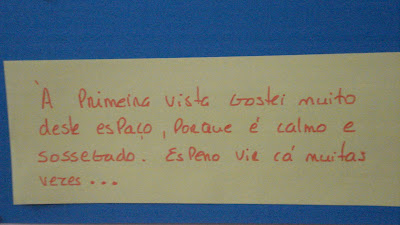 À Primeira vista Gostei muito
deste esPaço, Porque é calmo e
sossegado. EsPero vir cá muitas
vezes...